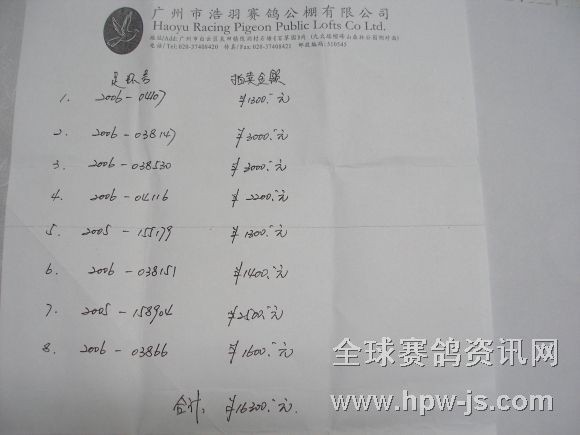 广州市浩羽赛鸽公棚有限公司
Haoyu Racing Pigeon Public Lofts Co Ltd.
电话/Tel: 020-37408420 传真/Fax: 020-37408421 邮政编码: 510545
足环号 拍卖金额
1. 2006-04107 ¥1300.元
2. 2006-038147 ¥3000.元
3. 2006-038530 ¥3000.元
4. 2006-04116 ¥2200.元
5. 2005-155179 ¥1300.元
6. 2006-038151 ¥1400.元
7. 2005-158904 ¥2500.元
8. 2006-03866 ¥1600.元
合计: ¥16300.元.
全球赛鸽资讯网
www.hpw-js.com